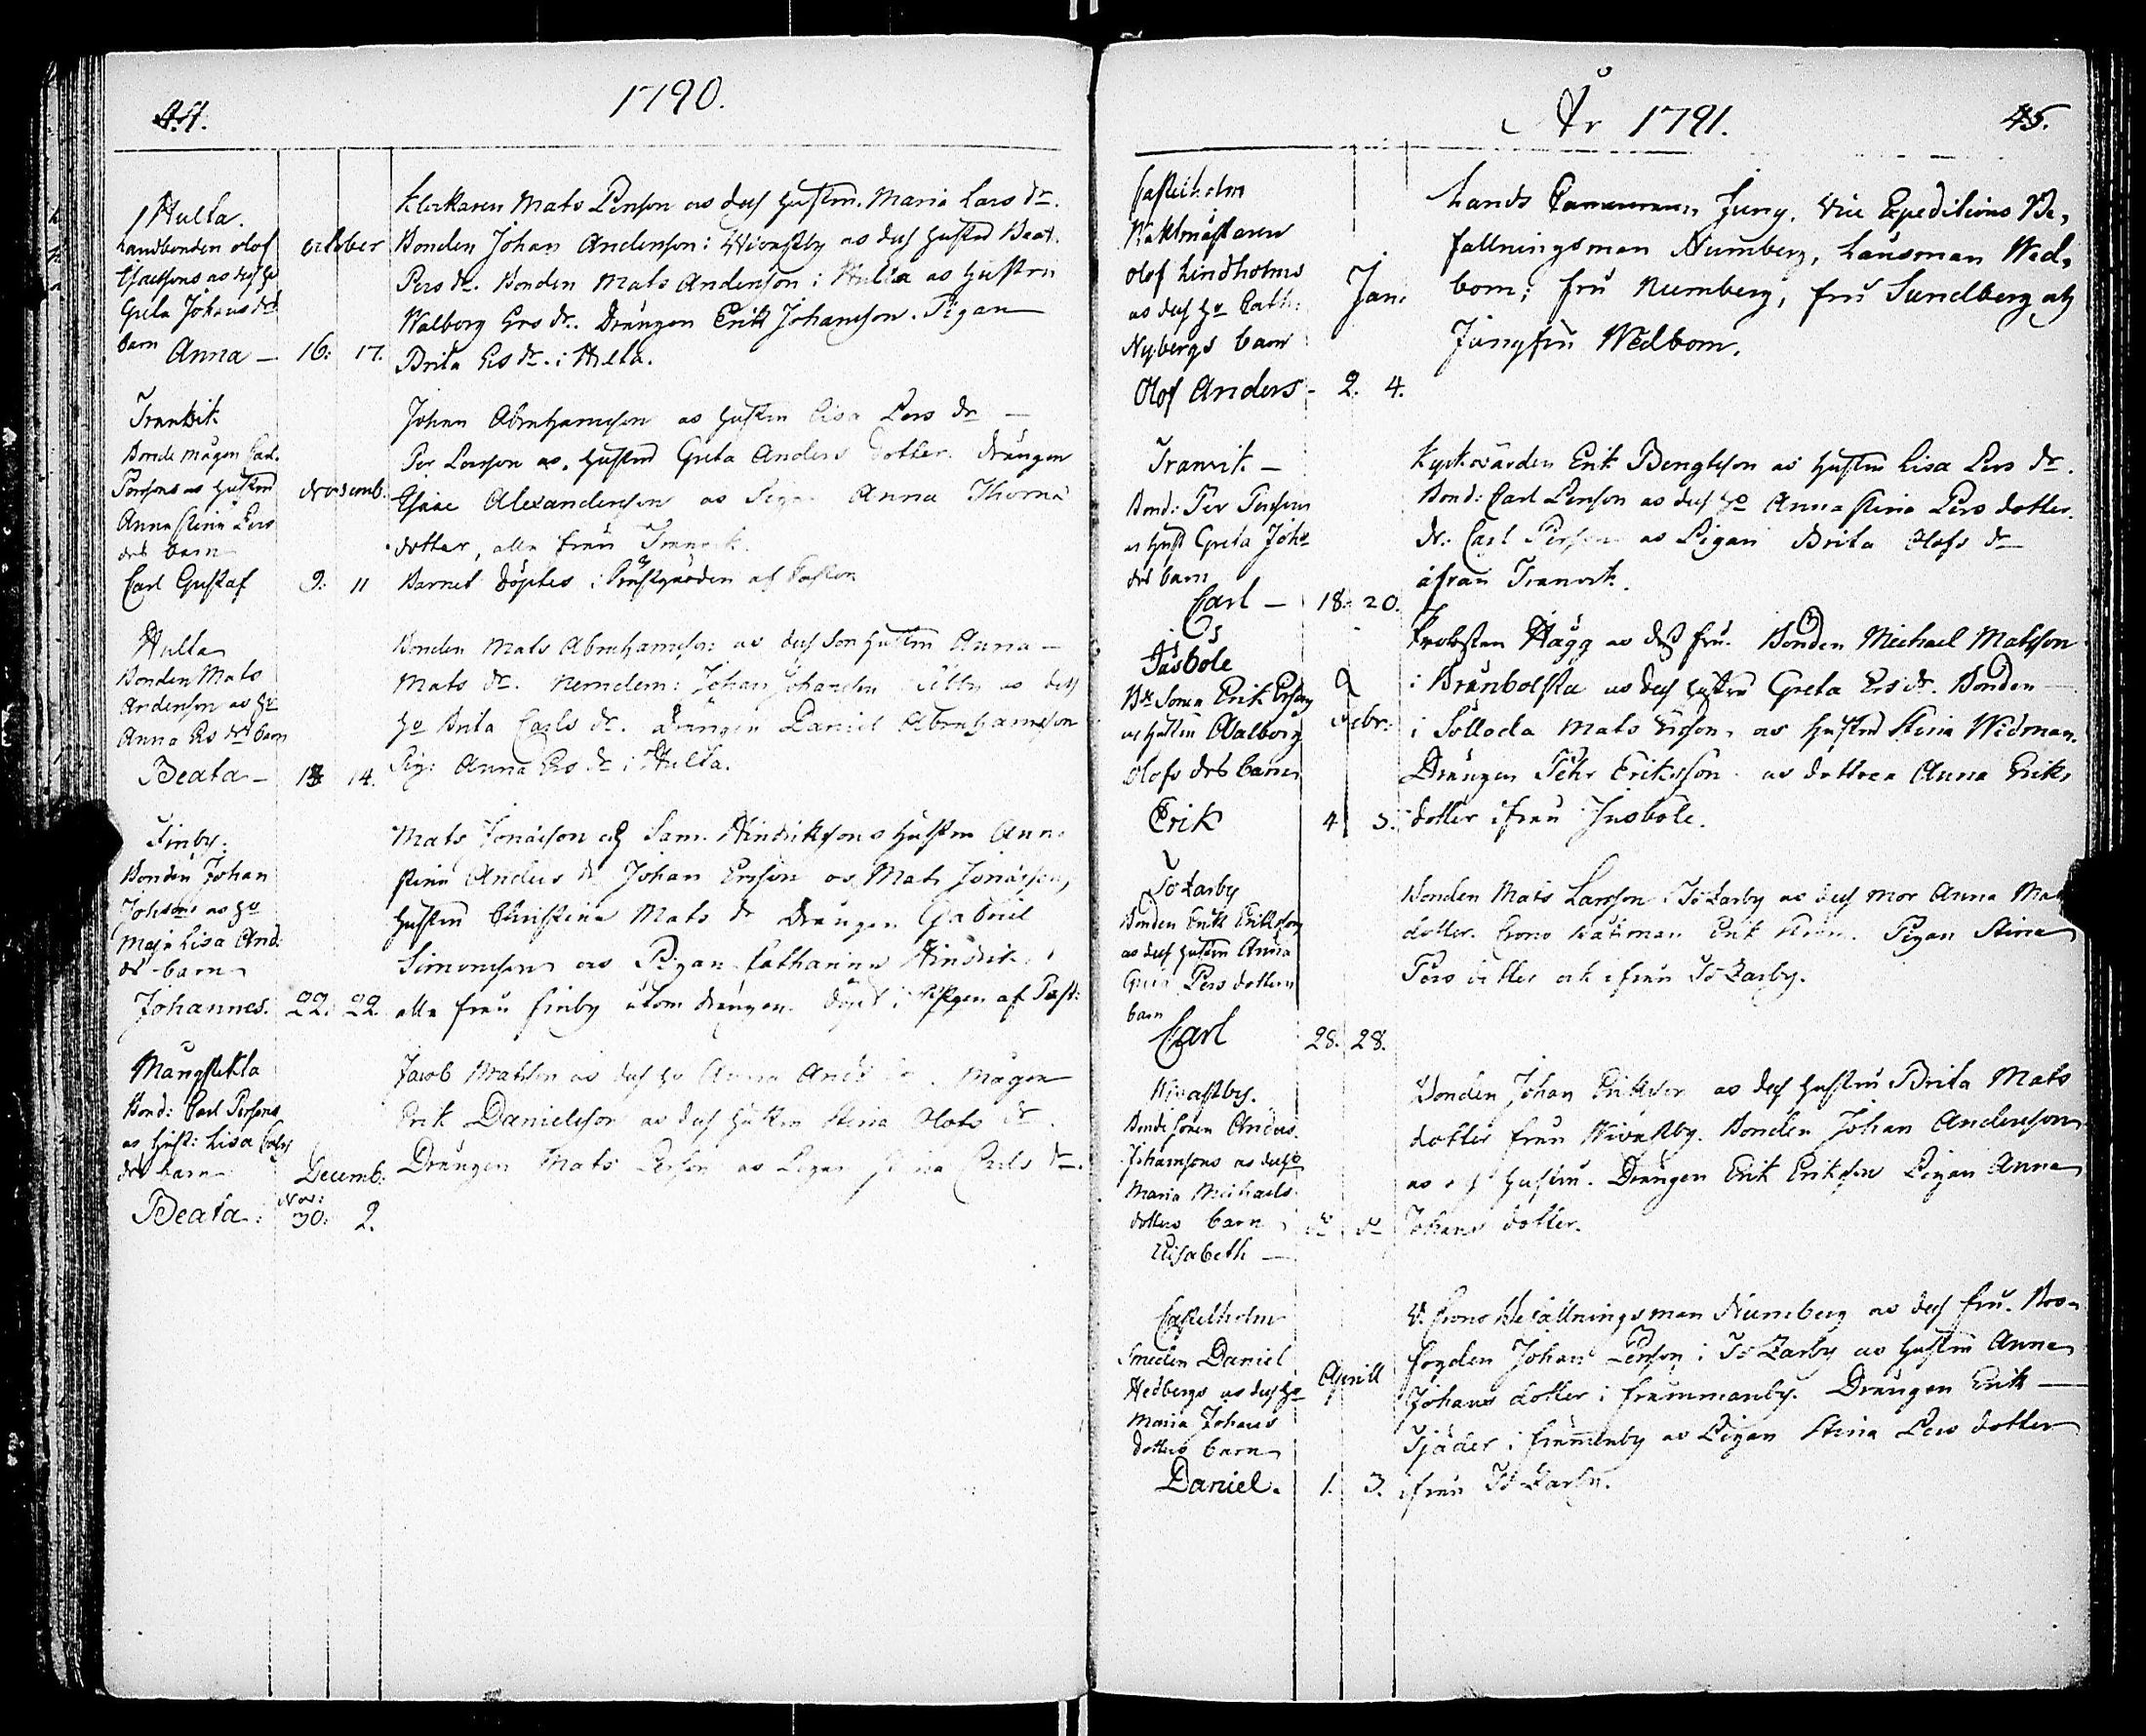 44.
1790.
Hulta.
Landbonden Olof
Isacssons och dess Ho
Greta Johans dr
barn Anna —
October
16. 17.
Klockaren Mats Person och dess Hustru Maria Lars dr.
Bonden Johan Anderson i Wivastby och dess Hustru Beat.
Pers dr. Bonden Mats Anderson i Hulta och Hustru
Walborg Ers dr. Drängen Erik Johansson. Pigan
Brita Ers dr. i Hulta.
Tranvik
Bonde mågen Carl
Perssons och Hustru
Anna Stina Pers
drs barn
Carl Gustaf
Novemb.
9. 11
Johan Abrahamsson och Hustru Lisa Pers dr —
Per Larsson och Hustru Greta Anders dotter. Drängen
Isaac Alexandersson och Anna Thoma
dotter, alla från Tranvik.
Barnet döptes i Prästgården af Pastor
Hulta
Bonden Mats
Anderson och Ho
Anna Ers drs barn
Beata — 13 14.
Bonden Mats Abrahamsson och dess Son Hustru Anna —
Mats dr. Nemdem: Johan Johansson och dess
Ho Brita Carls dr. Drängen Daniel Abrahamsson
Pig: Anna Ers dr i Hulta.
Finby.
Bonden Johan
Johssons och Ho
Maja Lisa And.
drs barn
Johannes. 22. 22.
Mats Jonasson och Sam. Hindrikssons Hustru Anna
Stina Anders dr Johan Ersson och Mats Jonasson,
Hustru Christina Mats dr Drängen Gabriel
Simonsson och Pigan Catharina Hindriks
alla från Finby utom drängen. döpt i af Past:
Mångstekta
Bond: Carl Perssons
och Hust: Lisa Carls
drs barn
Beata.
Decemb:
Nov:
30. 2.
Jacob Matsson och dess Ho Anna And dr. Mågen
Erik Danielsson och dess Hustru Stina Mats dr.
Drängen Mats Persson och Pigan Carls dr.
År 1791.
45.
Castelholm
Waktmästaren
Olof Lindholms
och dess Ho Cath:
Nybergs barn
Olof Anders —
Jan.
2. 4.
Lands Jung. Vice Expeditions Be,
fallningsman Numberg, Länsman Wed,
bom; fru Numberg, fru Sundberg och
Jungfru Wedbom.
Tranvik —
Bond: Per Perssons
och Hust Greta Johs
drs barn
Carl — 18. 20.
Kyrkovärden Erik Bengtsson och Hustru Lisa Pers dr.
Bond: Carl Person och dess Ho Anna Stina Pers dotter.
dr: Carl Persson och Pigan Brita Olofs dr
ifrån Tranvik.
Jusböle
Bde Sonen Erik Ersons
och Hustru Walborg
Olofs drs barn
Erik
Febr:
4. 5.
Probsten Hägg och dess fru. Bonden Michael Matsson
i Bränbolsta och dess Hustru Greta Ers dr. Bonden
i Sölloda Mats Ersson och Hustru Stina Widman.
Drängen Pehr Eriksson och dottren Anna Eriks
dotter ifrån Jusböle.
Tosarby
Bonden Erik Eriksson
och dess Hustru Anna
Greta Pers dotters
barn
Carl 28. 28.
Bonden Mats Larsson i Tosarby och dess mor Anna Mats
dotter. Crono båtsman Erik . Pigan Stina
Pers dotter ifrån Tosarby.
Wivastby.
Bonde Sonen Anders
Johanssons och dess Ho
Maria Michaels
dotters barn
Elisabeth —
do do
Bonden Johan Eriksson och dess Hustru Brita Mats
dotter från Wivastby. Bonden Johan Andersson
och dess Hustru. Drängen Erik Eriksson Pigan Anna
Johans dotter.
Castelholm
Smeden Daniel
Hedbergs och dess Ho
Maria Johans
dotters barn
Daniel.
Aprill
1. 3.
V. Crono Befallningsman Numberg och dess fru. Bro-
fogden Johan Persson i Tosarby och Hustru Anna
Johans dotter i främmanby. Drängen Erik —
Tjäder i främmenby och Pigan Stina Pers dotter
ifrån Tosarby.